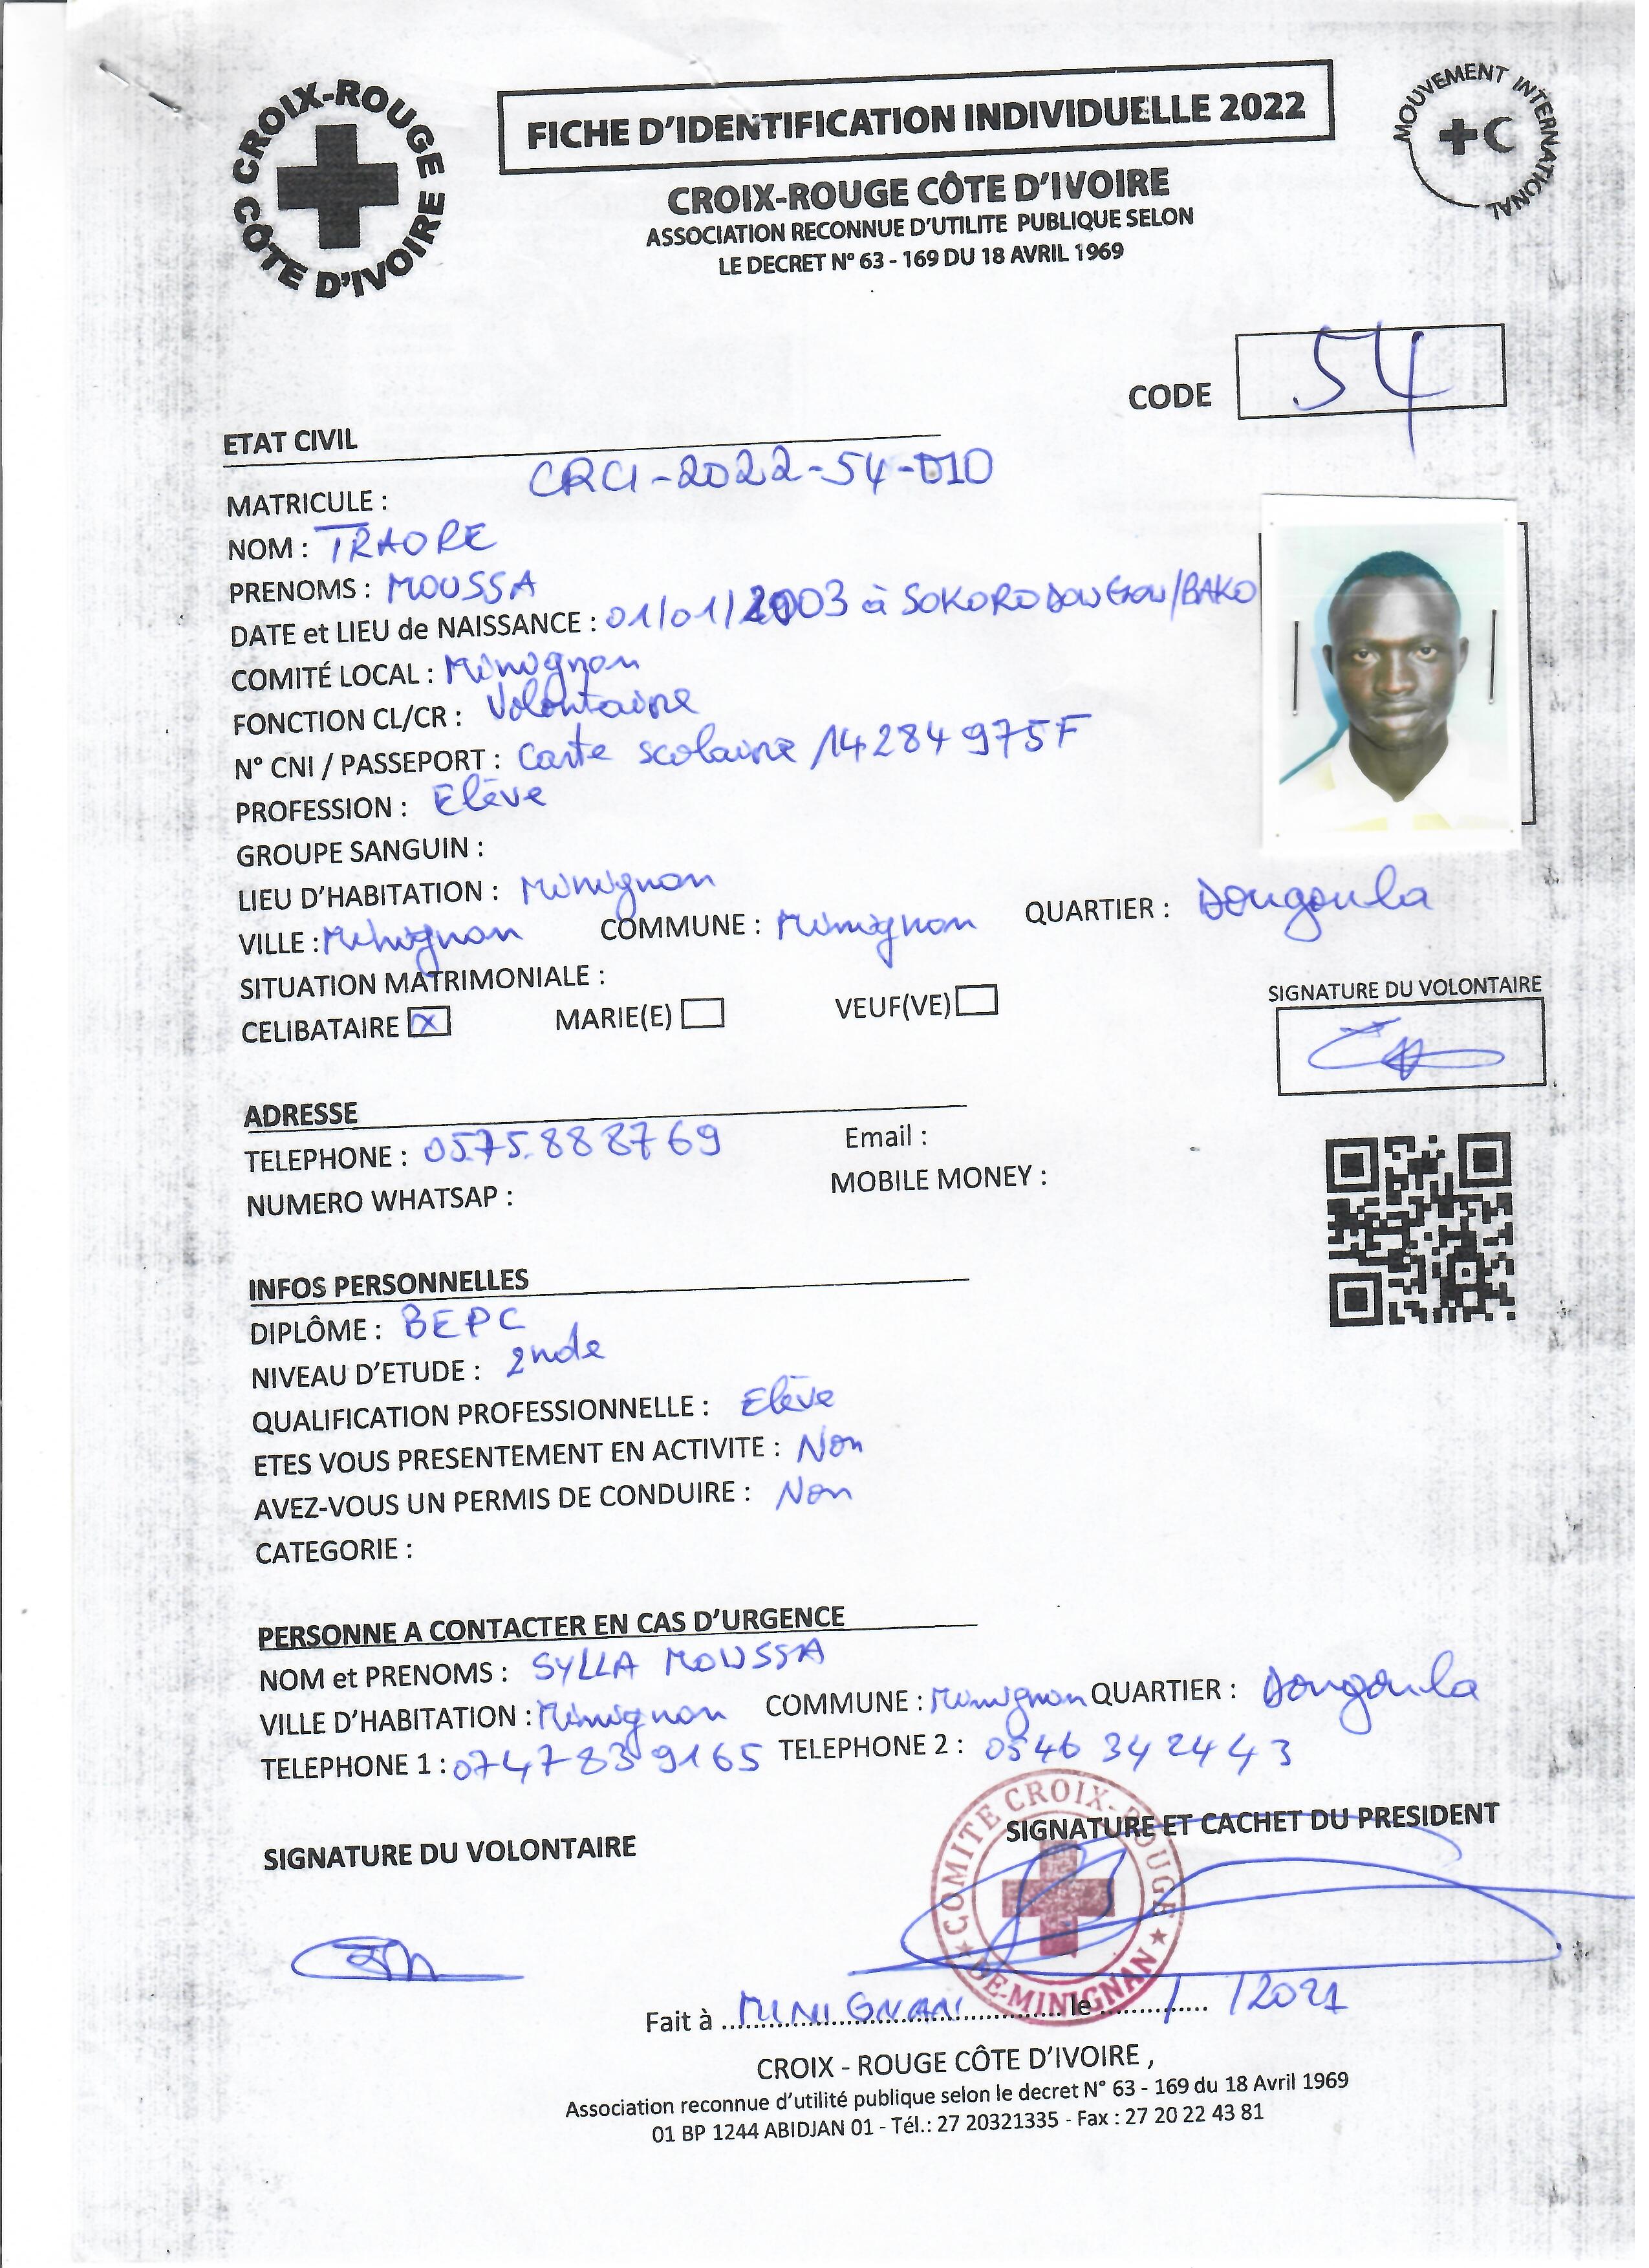 CROIX-ROUGE CÔTE D'IVOIRE
FICHE D'IDENTIFICATION INDIVIDUELLE 2022
MOUVEMENT INTERNATIONAL
CROIX-ROUGE CÔTE D'IVOIRE
ASSOCIATION RECONNUE D'UTILITE PUBLIQUE SELON
LE DECRET N° 63 - 169 DU 18 AVRIL 1969
CODE 54
ETAT CIVIL
MATRICULE : CRCI-2022-54-010
NOM : TRAORE
PRENOMS : MOUSSA
DATE et LIEU de NAISSANCE : 01/01/2003 à SOKORODOUGOU/BAKO
COMITÉ LOCAL : Minignan
FONCTION CL/CR : Volontaire
N° CNI / PASSEPORT : Carte scolaire 14284975F
PROFESSION : Elève
GROUPE SANGUIN :
LIEU D'HABITATION : Minignan
VILLE : Minignan COMMUNE : Minignan QUARTIER : Dougoula
SITUATION MATRIMONIALE :
CELIBATAIRE x MARIE(E) VEUF(VE)
SIGNATURE DU VOLONTAIRE
ADRESSE
TELEPHONE : 0575.888769 Email :
NUMERO WHATSAP : MOBILE MONEY :
INFOS PERSONNELLES
DIPLÔME : BEPC
NIVEAU D'ETUDE : 2nde
QUALIFICATION PROFESSIONNELLE : Elève
ETES VOUS PRESENTEMENT EN ACTIVITE : Non
AVEZ-VOUS UN PERMIS DE CONDUIRE : Non
CATEGORIE :
PERSONNE A CONTACTER EN CAS D'URGENCE
NOM et PRENOMS : SYLLA MOUSSA
VILLE D'HABITATION : Minignan COMMUNE : Minignan QUARTIER : Dougoula
TELEPHONE 1 : 0747839165 TELEPHONE 2 : 0546 342443
SIGNATURE DU VOLONTAIRE
SIGNATURE ET CACHET DU PRESIDENT
COMITE CROIX-ROUGE DE MINIGNAN
Fait à MINIGNAN le / /2021
CROIX - ROUGE CÔTE D'IVOIRE ,
Association reconnue d'utilité publique selon le decret N° 63 - 169 du 18 Avril 1969
01 BP 1244 ABIDJAN 01 - Tél.: 27 20321335 - Fax : 27 20 22 43 81